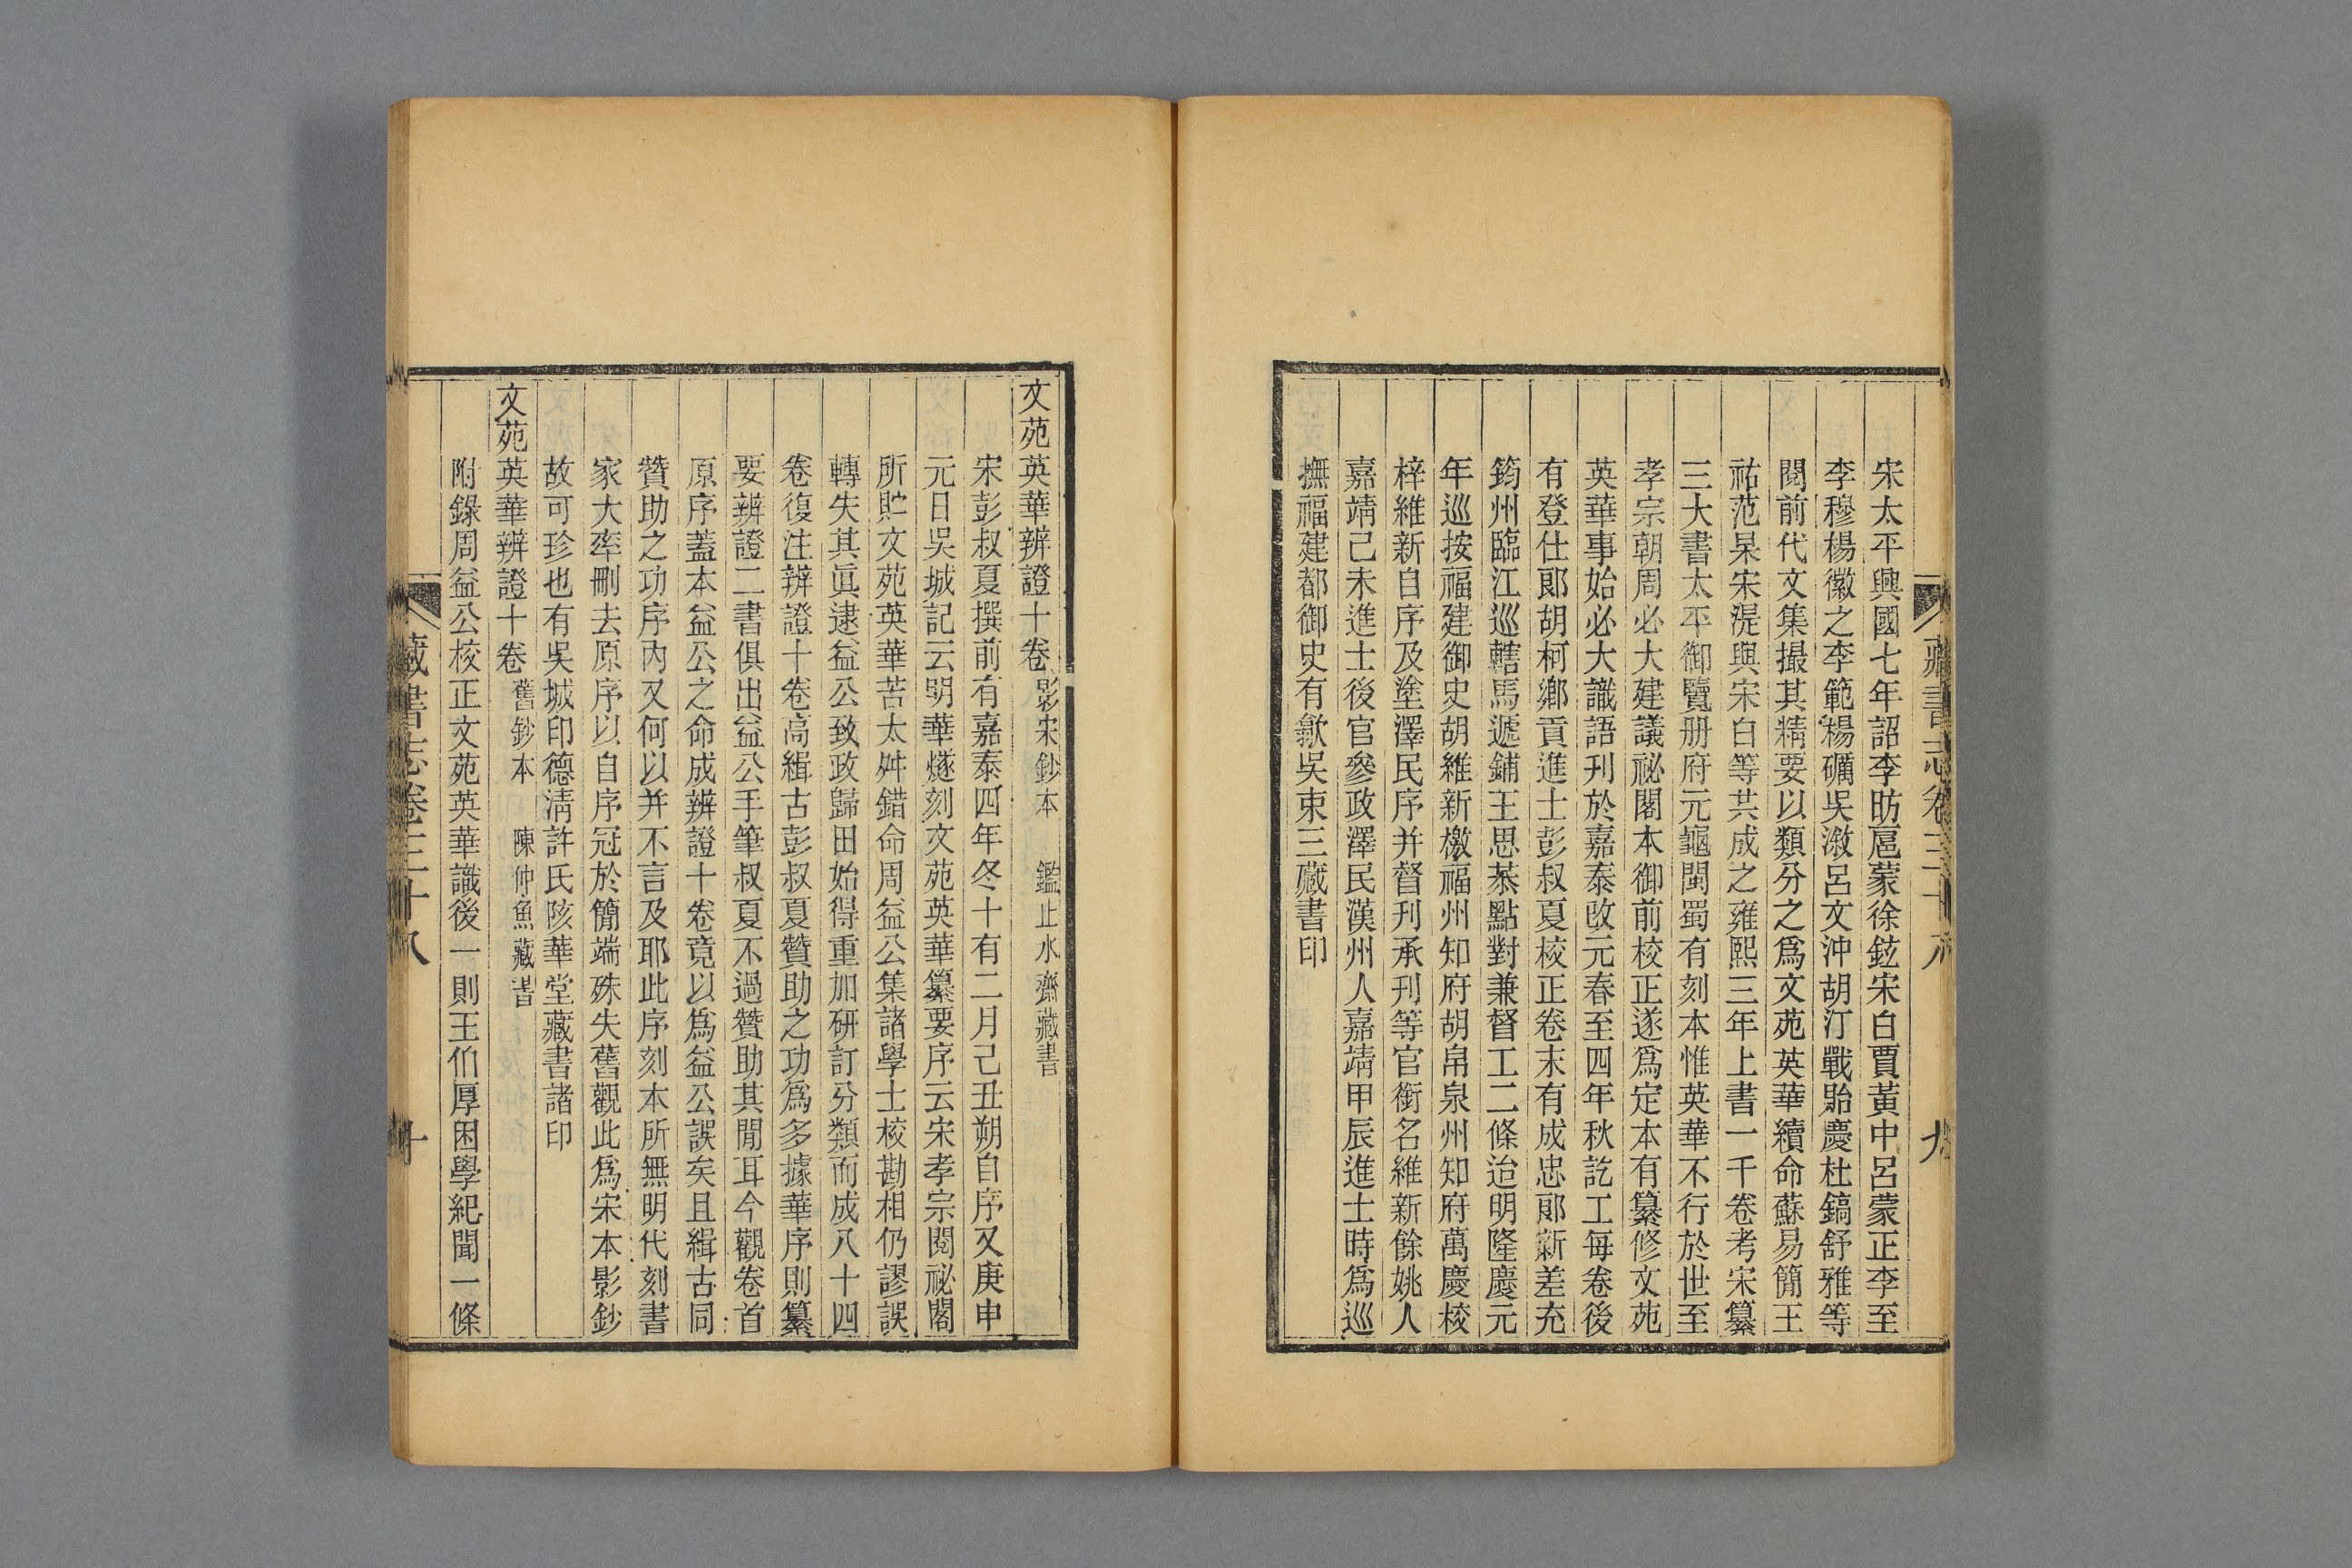 藏書志卷三十八 九
宋太平興國七年詔李昉扈蒙徐鉉宋白賈黃中呂蒙正李至
李穆楊徽之李範楊礪吳淑呂文沖胡汀戰貽慶杜鎬舒雅等
閱前代文集撮其精要以類分之爲文苑英華續命蘇易簡王
祐范杲宋湜與宋白等共成之雍熙三年上書一千卷考宋纂
三大書太平御覽册府元龜閩蜀有刻本惟英華不行於世至
孝宗朝周必大建議祕閣本御前校正遂爲定本有纂修文苑
英華事始必大識語刊於嘉泰改元春至四年秋訖工每卷後
有登仕郞胡柯鄉貢進士彭叔夏校正卷末有成忠郞新差充
筠州臨江巡轄馬遞鋪王思恭點對兼督工二條迨明隆慶元
年巡按福建御史胡維新檄福州知府胡帛泉州知府萬慶校
梓維新自序及塗澤民序并督刊承刊等官銜名維新餘姚人
嘉靖己未進士後官參政澤民漢州人嘉靖甲辰進士時爲巡
撫福建都御史有歙吳束三藏書印
文苑英華辨證十卷 影宋鈔本 鑑止水齋藏書
宋彭叔夏撰前有嘉泰四年冬十有二月己丑朔自序又庚申
元日吳城記云明華燧刻文苑英華纂要序云宋孝宗閱祕閣
所貯文苑英華苦太舛錯命周益公集諸學士校勘相仍謬誤
轉失其眞逮益公致政歸田始得重加研訂分類而成八十四
卷復注辨證十卷高緝古彭叔夏贊助之功爲多據華序則纂
要辨證二書俱出益公手筆叔夏不過贊助其閒耳今觀卷首
原序蓋本益公之命成辨證十卷竟以爲益公誤矣且緝古同
贊助之功序內又何以并不言及耶此序刻本所無明代刻書
家大率刪去原序以自序冠於簡端殊失舊觀此爲宋本影鈔
故可珍也有吳城印德淸許氏陔華堂藏書諸印
文苑英華辨證十卷 舊鈔本 陳仲魚藏書
附錄周益公校正文苑英華識後一則王伯厚困學紀聞一條
藏書志卷三十八 十